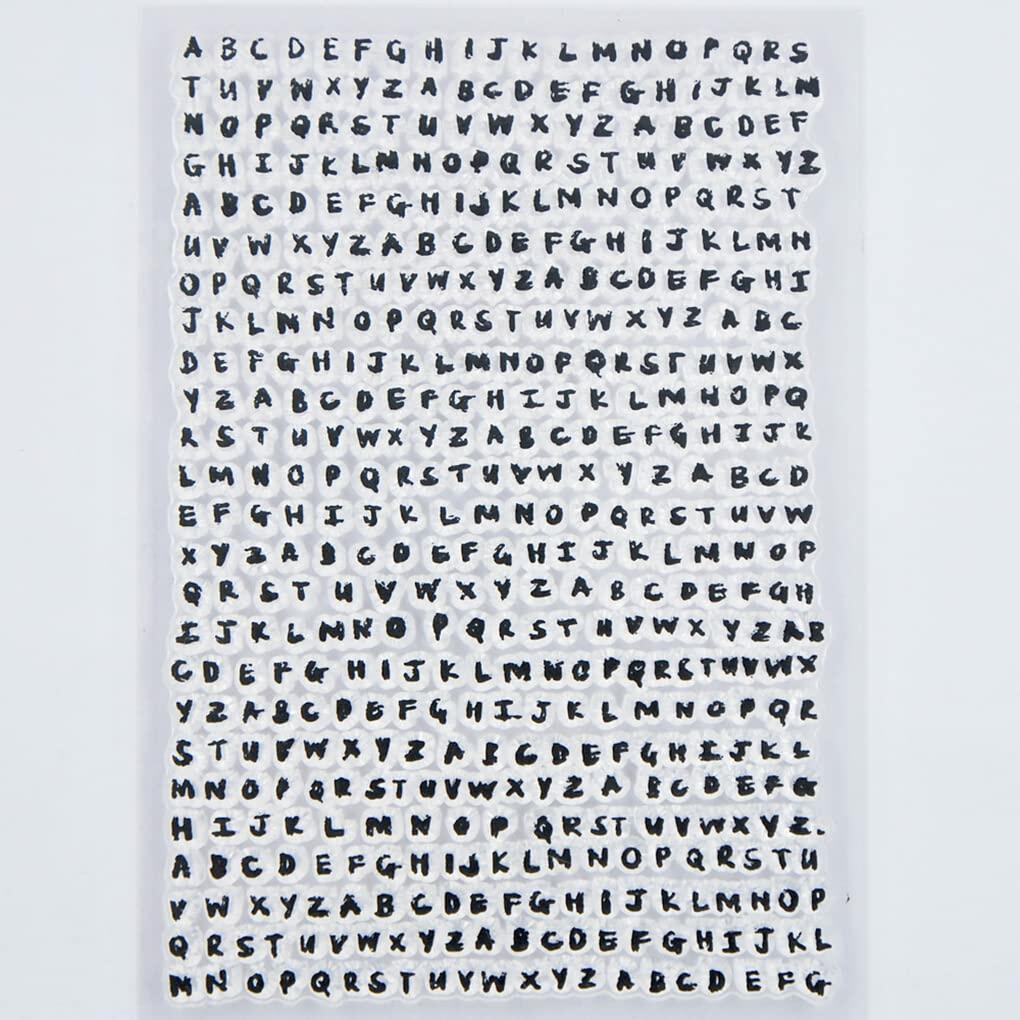 A B C D E F G H I J K L M N O P Q R S
T U V W X Y Z A B C D E F G H I J K L M
N O P Q R S T U V W X Y Z A B C D E F
G H I J K L M N O P Q R S T U V W X Y Z
A B C D E F G H I J K L M N O P Q R S T
U V W X Y Z A B C D E F G H I J K L M N
O P Q R S T U V W X Y Z A B C D E F G H I
J K L M N O P Q R S T U V W X Y Z A B C
D E F G H I J K L M N O P Q R S T U V W X
Y Z A B C D E F G H I J K L M N O P Q
R S T U V W X Y Z A B C D E F G H I J K
L M N O P Q R S T U V W X Y Z A B C D
E F G H I J K L M N O P Q R S T U V W
X Y Z A B C D E F G H I J K L M N O P
Q R S T U V W X Y Z A B C D E F G H
I J K L M N O P Q R S T U V W X Y Z A B
C D E F G H I J K L M N O P Q R S T U V W X
Y Z A B C D E F G H I J K L M N O P Q R
S T U V W X Y Z A B C D E F G H I J K L
M N O P Q R S T U V W X Y Z A B C D E F G
H I J K L M N O P Q R S T U V W X Y Z.
A B C D E F G H I J K L M N O P Q R S T U
V W X Y Z A B C D E F G H I J K L M N O P
Q R S T U V W X Y Z A B C D E F G H I J K L
M N O P Q R S T U V W X Y Z A B C D E F G